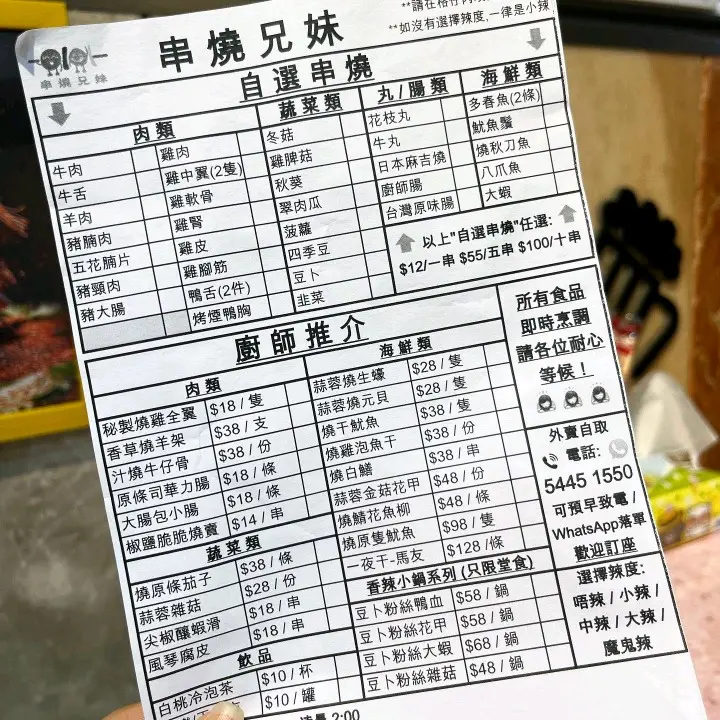 串燒兄妹
串燒兄妹
**如沒有選擇辣度,一律是小辣
自選串燒
肉類
牛肉
牛舌
羊肉
豬腩肉
五花腩片
豬頸肉
豬大腸
雞肉
雞中翼(2隻)
雞軟骨
雞腎
雞皮
雞腳筋
鴨舌(2件)
烤煙鴨胸
蔬菜類
冬菇
雞脾菇
秋葵
翠肉瓜
菠蘿
四季豆
豆卜
韭菜
丸/腸類
花枝丸
牛丸
日本麻吉燒
廚師腸
台灣原味腸
海鮮類
多春魚(2條)
魷魚鬚
燒秋刀魚
八爪魚
大蝦
以上"自選串燒"任選:
$12/一串 $55/五串 $100/十串
廚師推介
肉類
秘製燒雞全翼 $18 / 隻
香草燒羊架 $38 / 支
汁燒牛仔骨 $38 / 份
原條司華力腸 $18 / 條
大腸包小腸 $18 / 條
椒鹽脆脆燒賣 $14 / 串
蔬菜類
燒原條茄子 $38 / 條
蒜蓉雜菇 $28 / 份
尖椒釀蝦滑 $18 / 串
風琴腐皮 $18 / 串
飲品
白桃冷泡茶 $10 / 杯
$10 / 罐
海鮮類
蒜蓉燒生蠔 $28 / 隻
蒜蓉燒元貝 $28 / 隻
燒干魷魚 $38 / 隻
燒雞泡魚干 $38 / 份
燒白鱔 $38 / 串
蒜蓉金菇花甲 $48 / 份
燒鯖花魚柳 $48 / 條
燒原隻魷魚 $98 / 隻
一夜干-馬友 $128 /條
香辣小鍋系列 (只限堂食)
豆卜粉絲鴨血 $58 / 鍋
豆卜粉絲花甲 $58 / 鍋
豆卜粉絲大蝦 $68 / 鍋
豆卜粉絲雜菇 $48 / 鍋
所有食品
即時烹調
請各位耐心
等候！
外賣自取
電話:
5445 1550
可預早致電 /
WhatsApp落單
歡迎訂座
選擇辣度:
唔辣 / 小辣 /
中辣 / 大辣 /
魔鬼辣
2:00